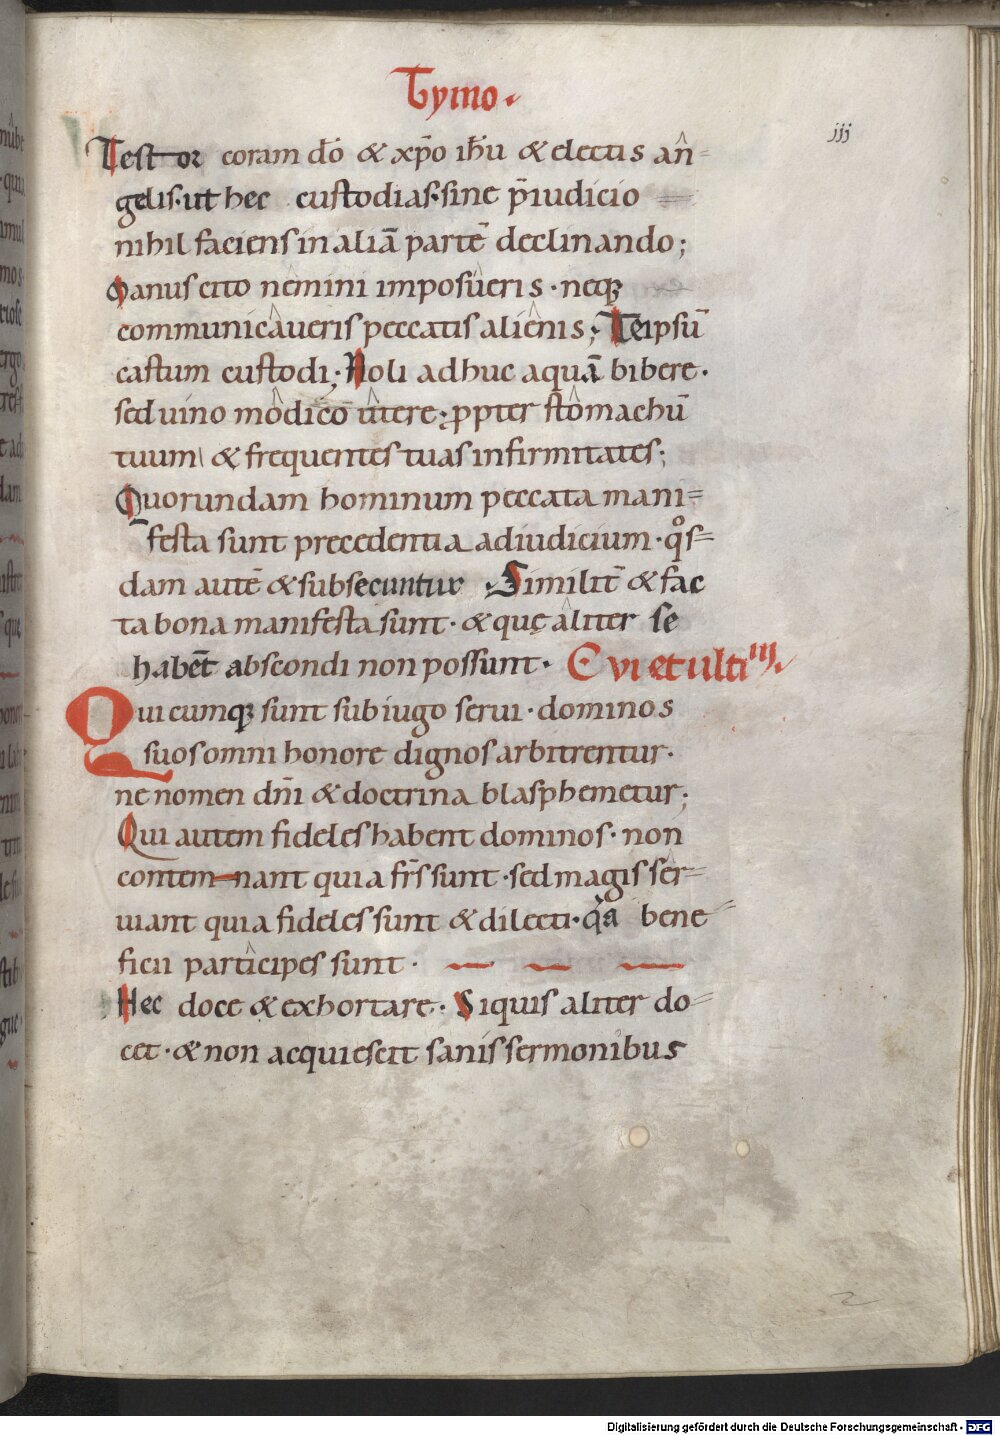 Tymo.
iij
Testor coram dō & xp̄o ihū & electis an̄=
gelis. ut hec custodias. sine p̄iudicio
nihil faciens in aliā partē declinando;
Manus cito nemini imposueris. neq;
communicaueris peccatis alienis; Teipsū
castum custodi; Noli adhuc aquā bibere.
sed uino modico utere. ꝓpter stomachū
tuum & frequentes tuas infirmitates;
Quorundam hominum peccata mani=
festa sunt precedentia adiudicium. qͦs=
dam autē & subsecuntur. Similit̄ & fac
ta bona manifesta sunt. & quę aliter se
habent̄ abscondi non possunt. C vi et ulti iij.
Quicumq; sunt sub iugo serui. dominos
suos omni honore dignos arbitrentur.
ne nomen dn̄i & doctrina blasphemetur;
Qui autem fideles habent dominos. non
contemnant quia fr̄s sunt. sed magis ser=
uiant quia fideles sunt & dilecti. qͣa bene=
ficii participes sunt.
Hec doce & exhortare. Siquis aliter do=
cet. & non acquiescit sanis sermonibus
Digitalisierung gefördert durch die Deutsche Forschungsgemeinschaft - DFG